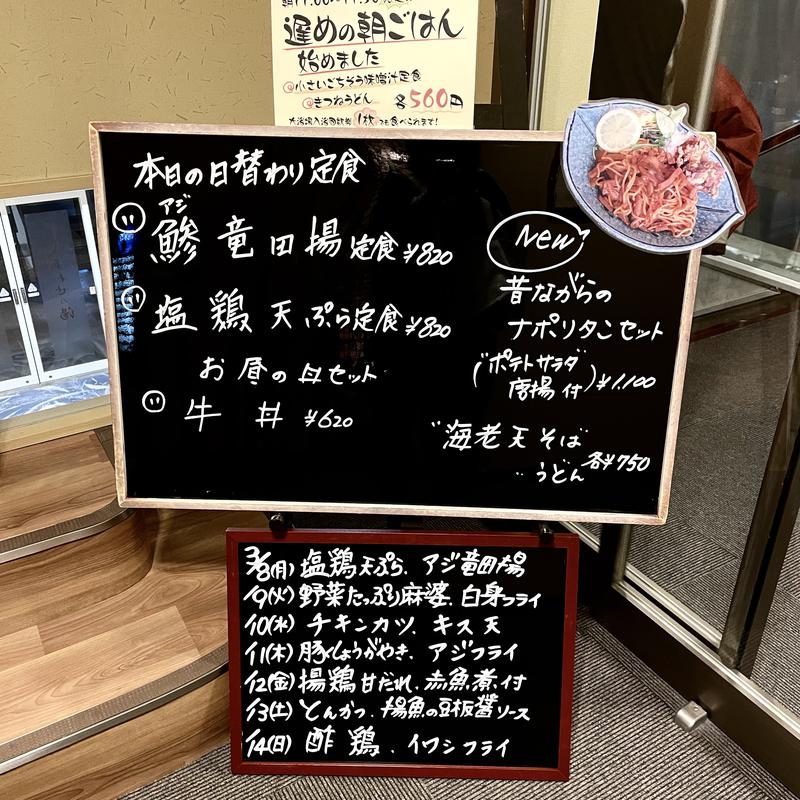 遅めの朝ごはん
始めました
@小さいごちそう味噌汁定食
@きつねうどん 各560円
本日の日替わり定食
アジ
鯵竜田揚定食¥820
塩鶏天ぷら定食¥820
お昼の丼セット
牛丼¥620
New
昔ながらの
ナポリタンセット
(ポテトサラダ
唐揚付)¥1,100
海老天そば
〃うどん各¥750
3/8(月)塩鶏天ぷら、アジ竜田揚
/9(火)野菜たっぷり麻婆、白身フライ
/10(水)チキンカツ、キス天
/11(木)豚しょうがやき、アジフライ
/12(金)揚鶏甘だれ、赤魚煮付
/13(土)とんかつ、揚魚の豆板醤ソース
/14(日)酢鶏、イワシフライ